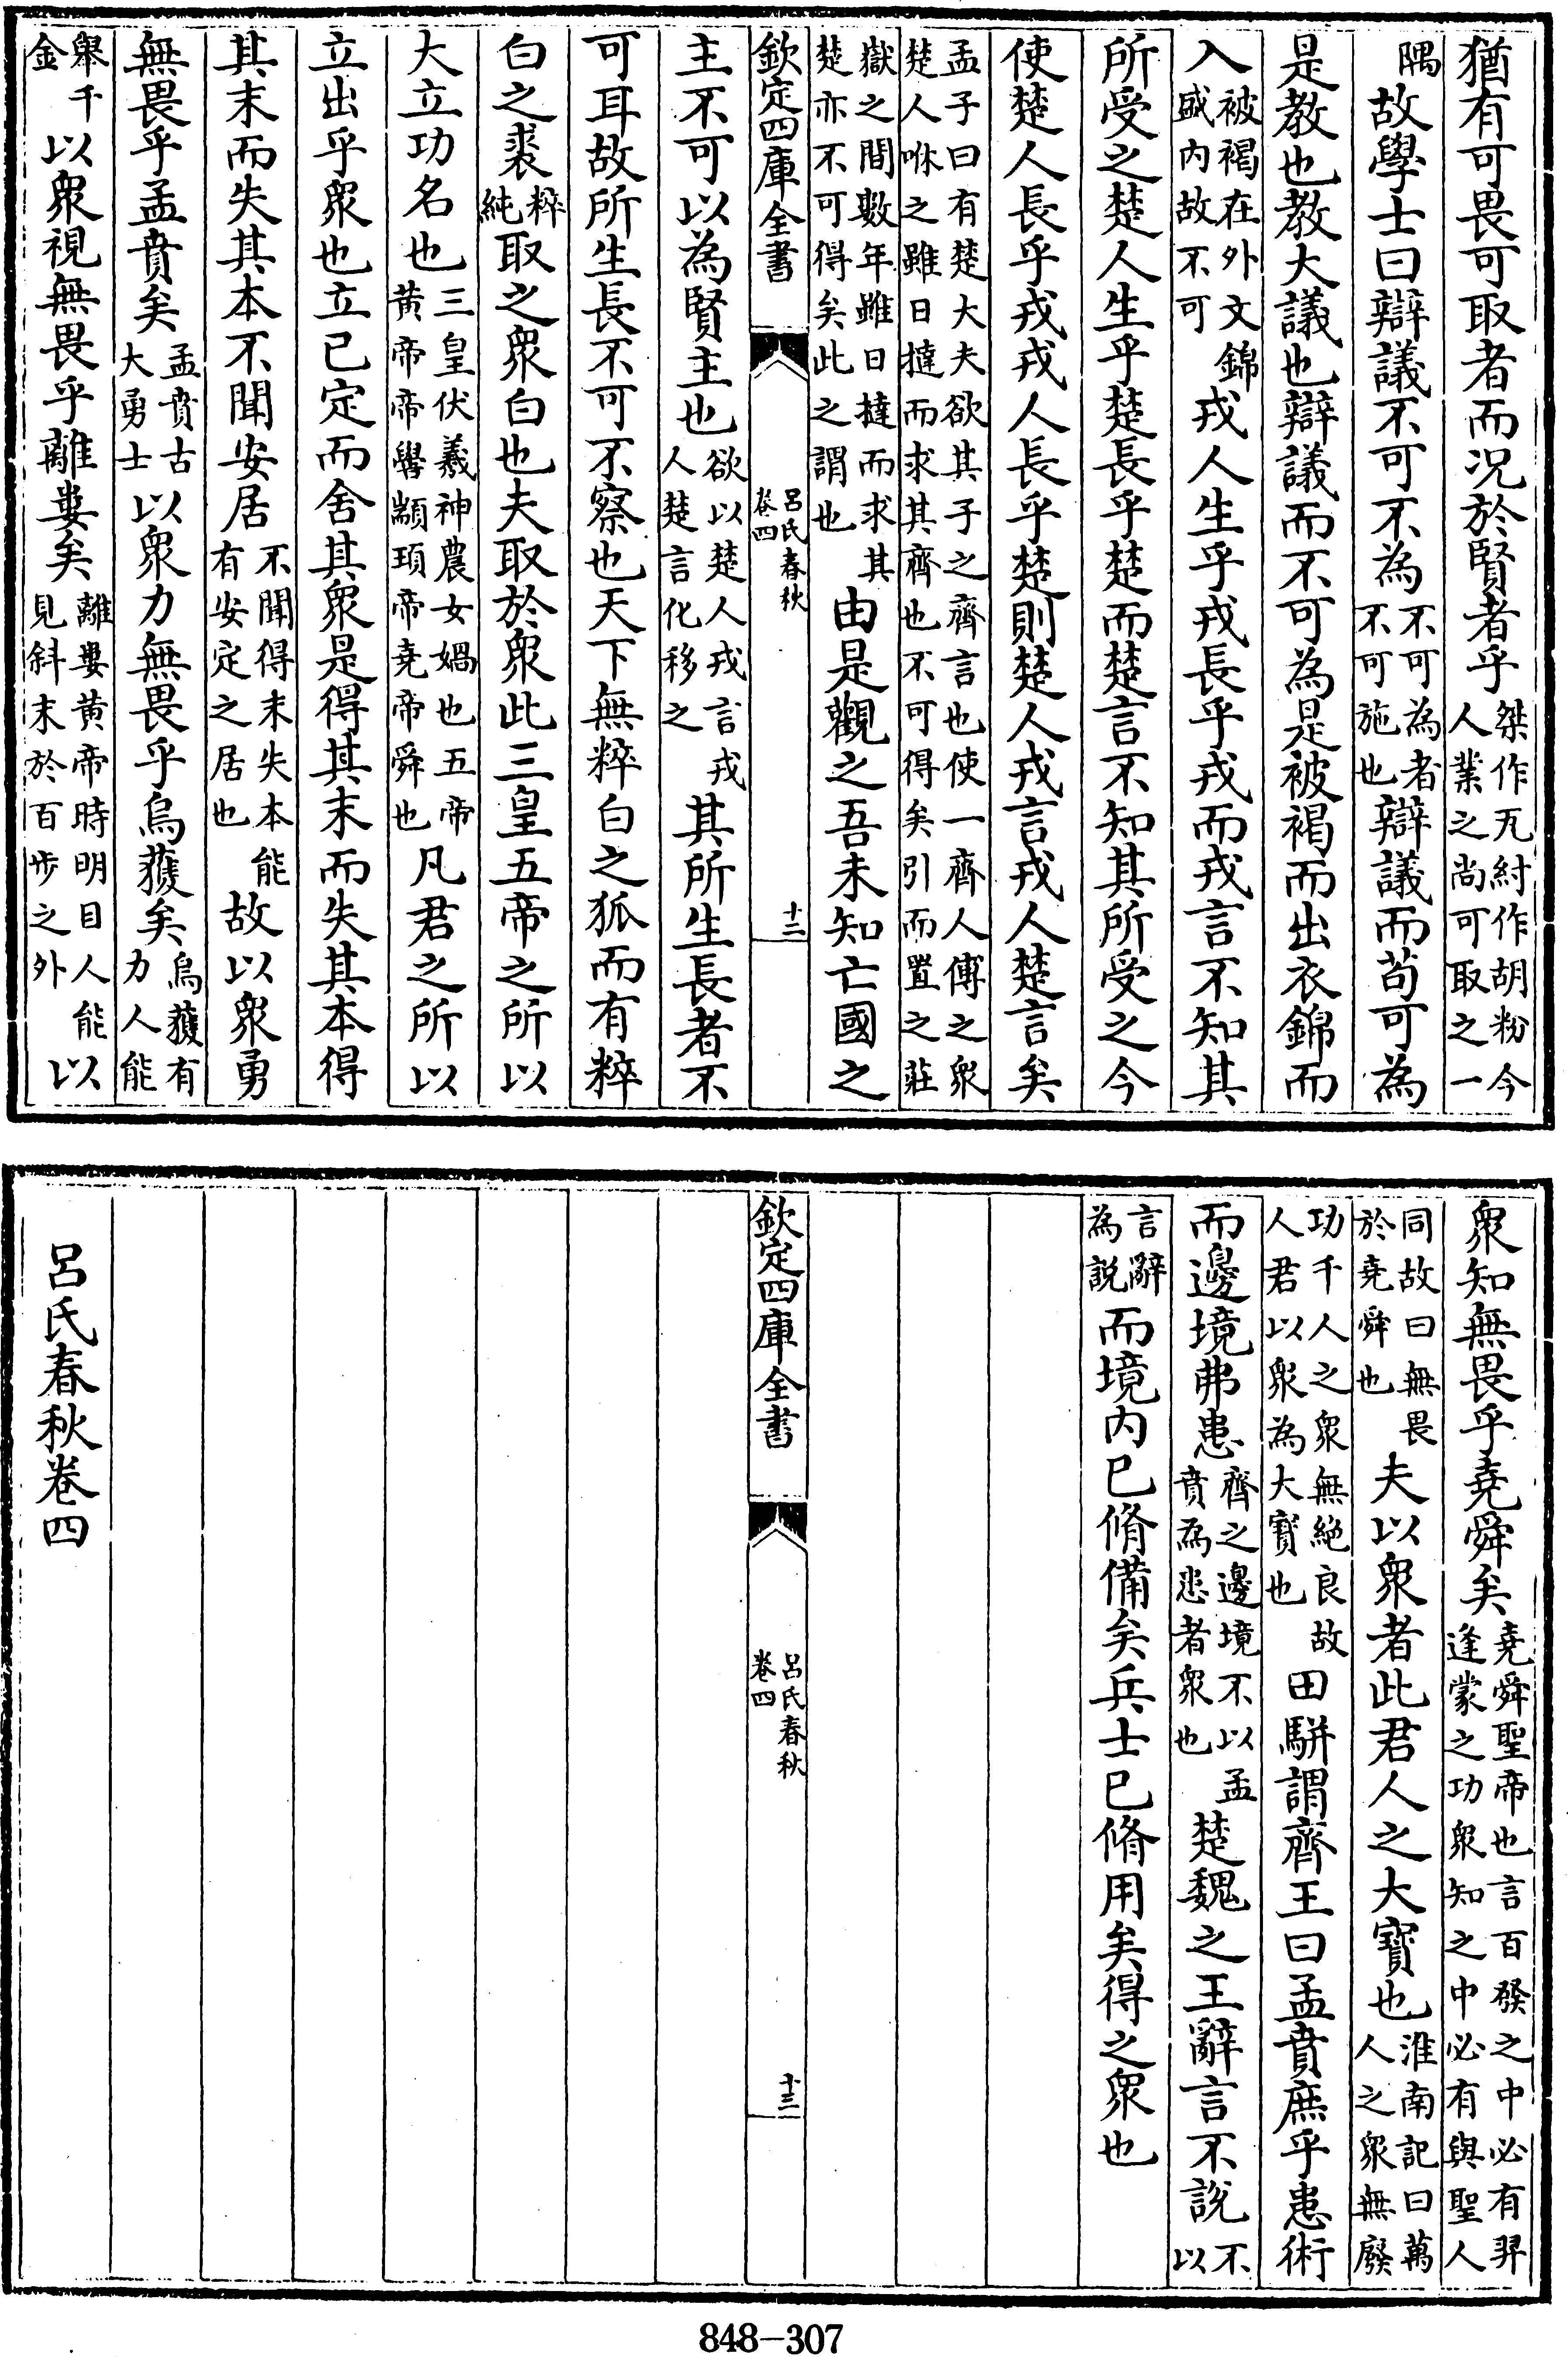 猶有可畏可取者而况於賢者乎桀作瓦紂作胡粉今人業之尚可取之一
隅故學士曰辯議不可不為不可為者不可施也辯議而苟可為
是教也教大議也辯議而不可為是被褐而出衣錦而
入被褐在外文錦盛内故不可戎人生乎戎長乎戎而戎言不知其
所受之楚人生乎楚長乎楚而楚言不知其所受之今
使楚人長乎戎戎人長乎楚則楚人戎言戎人楚言矣
孟子曰有楚大夫欲其子之齊言也使一齊人傅之衆楚人咻之雖日撻而求其齊也不可得矣引而置之莊
嶽之間數年雖日撻而求其楚亦不可得矣此之謂也由是觀之吾未知亡國之
欽定四庫全書 呂氏春秋卷四 十二
主不可以為賢主也欲以楚人戎言戎人楚言化移之其所生長者不
可耳故所生長不可不察也天下無粹白之狐而有粹
白之裘粹純取之衆白也夫取於衆此三皇五帝之所以
大立功名也三皇伏羲神農女媧也五帝黄帝帝嚳顓頊帝堯帝舜也凡君之所以
立出乎衆也立已定而舍其衆是得其末而失其本得
其末而失其本不聞安居不聞得末失本能有安定之居也故以衆勇
無畏乎孟賁矣孟賁古大勇士以衆力無畏乎烏獲矣烏獲有力人能
舉千金以衆視無畏乎離婁矣離婁黄帝時明目人能見針末於百歩之外以
衆知無畏乎堯舜矣堯舜聖帝也言百發之中必有羿逢蒙之功衆知之中必有與聖人
同故曰無畏於堯舜也夫以衆者此君人之大寳也淮南記曰萬人之衆無廢
功千人之衆無絶良故人君以衆為大寳也田駢謂齊王曰孟賁庶乎患術
而邊境弗患齊之邊境不以孟賁為患者衆也楚魏之王辭言不說不以
言辭為説而境内已脩備矣兵士已脩用矣得之衆也
欽定四庫全書 呂氏春秋卷四 十三
呂氏春秋卷四
848-307